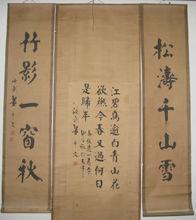 松濤千山雪
江碧鳥逾白青山花
欲燃今春又過何日
是歸年
竹影一窗秋